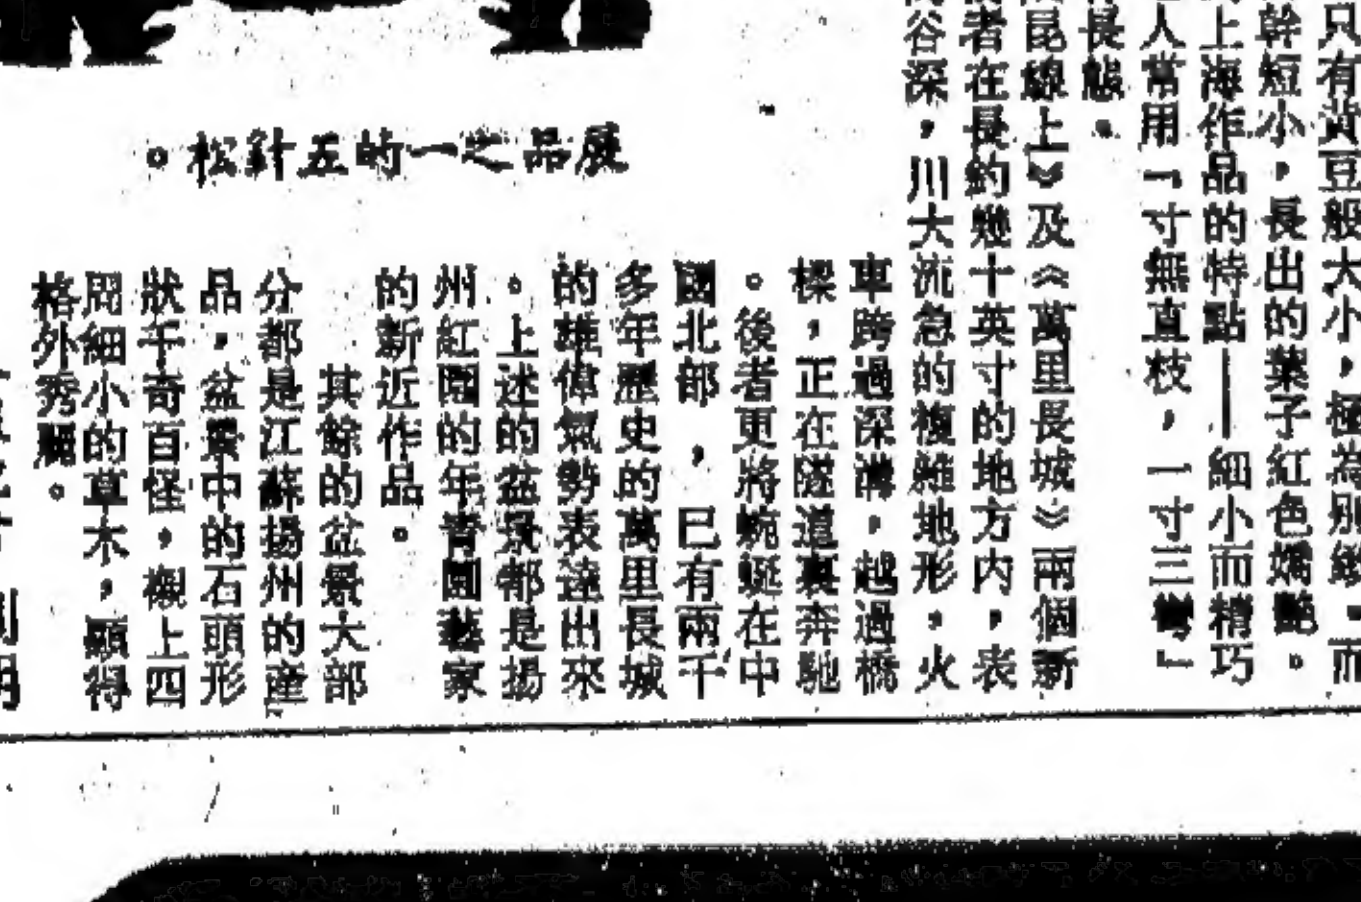 只有黃豆般大小，極為別緻。而
幹短小，長出的葉子紅色嬌艷。
上海作品的特點——細小而精巧
人常用「寸無直枝，一寸三彎」
長態。
昆線上》及《萬里長城》兩個新
者在長約幾十英寸的地方內，表
谷深，川大流急的複雜地形，火
車跨過深溝，越過橋
樑，正在隧道裏奔馳
。後者更將蜿蜒在中
國北部，已有兩千
多年歷史的萬里長城
的雄偉氣勢表達出來
。上述的盆景都是揚
州紅園的年青園藝家
的新近作品。
其餘的盆景大部
分都是江蘇揚州的產
品，盆景中的石頭形
狀千奇百怪，襯上四
周細小的草木，顯得
格外秀麗。
展品之一的五針松。